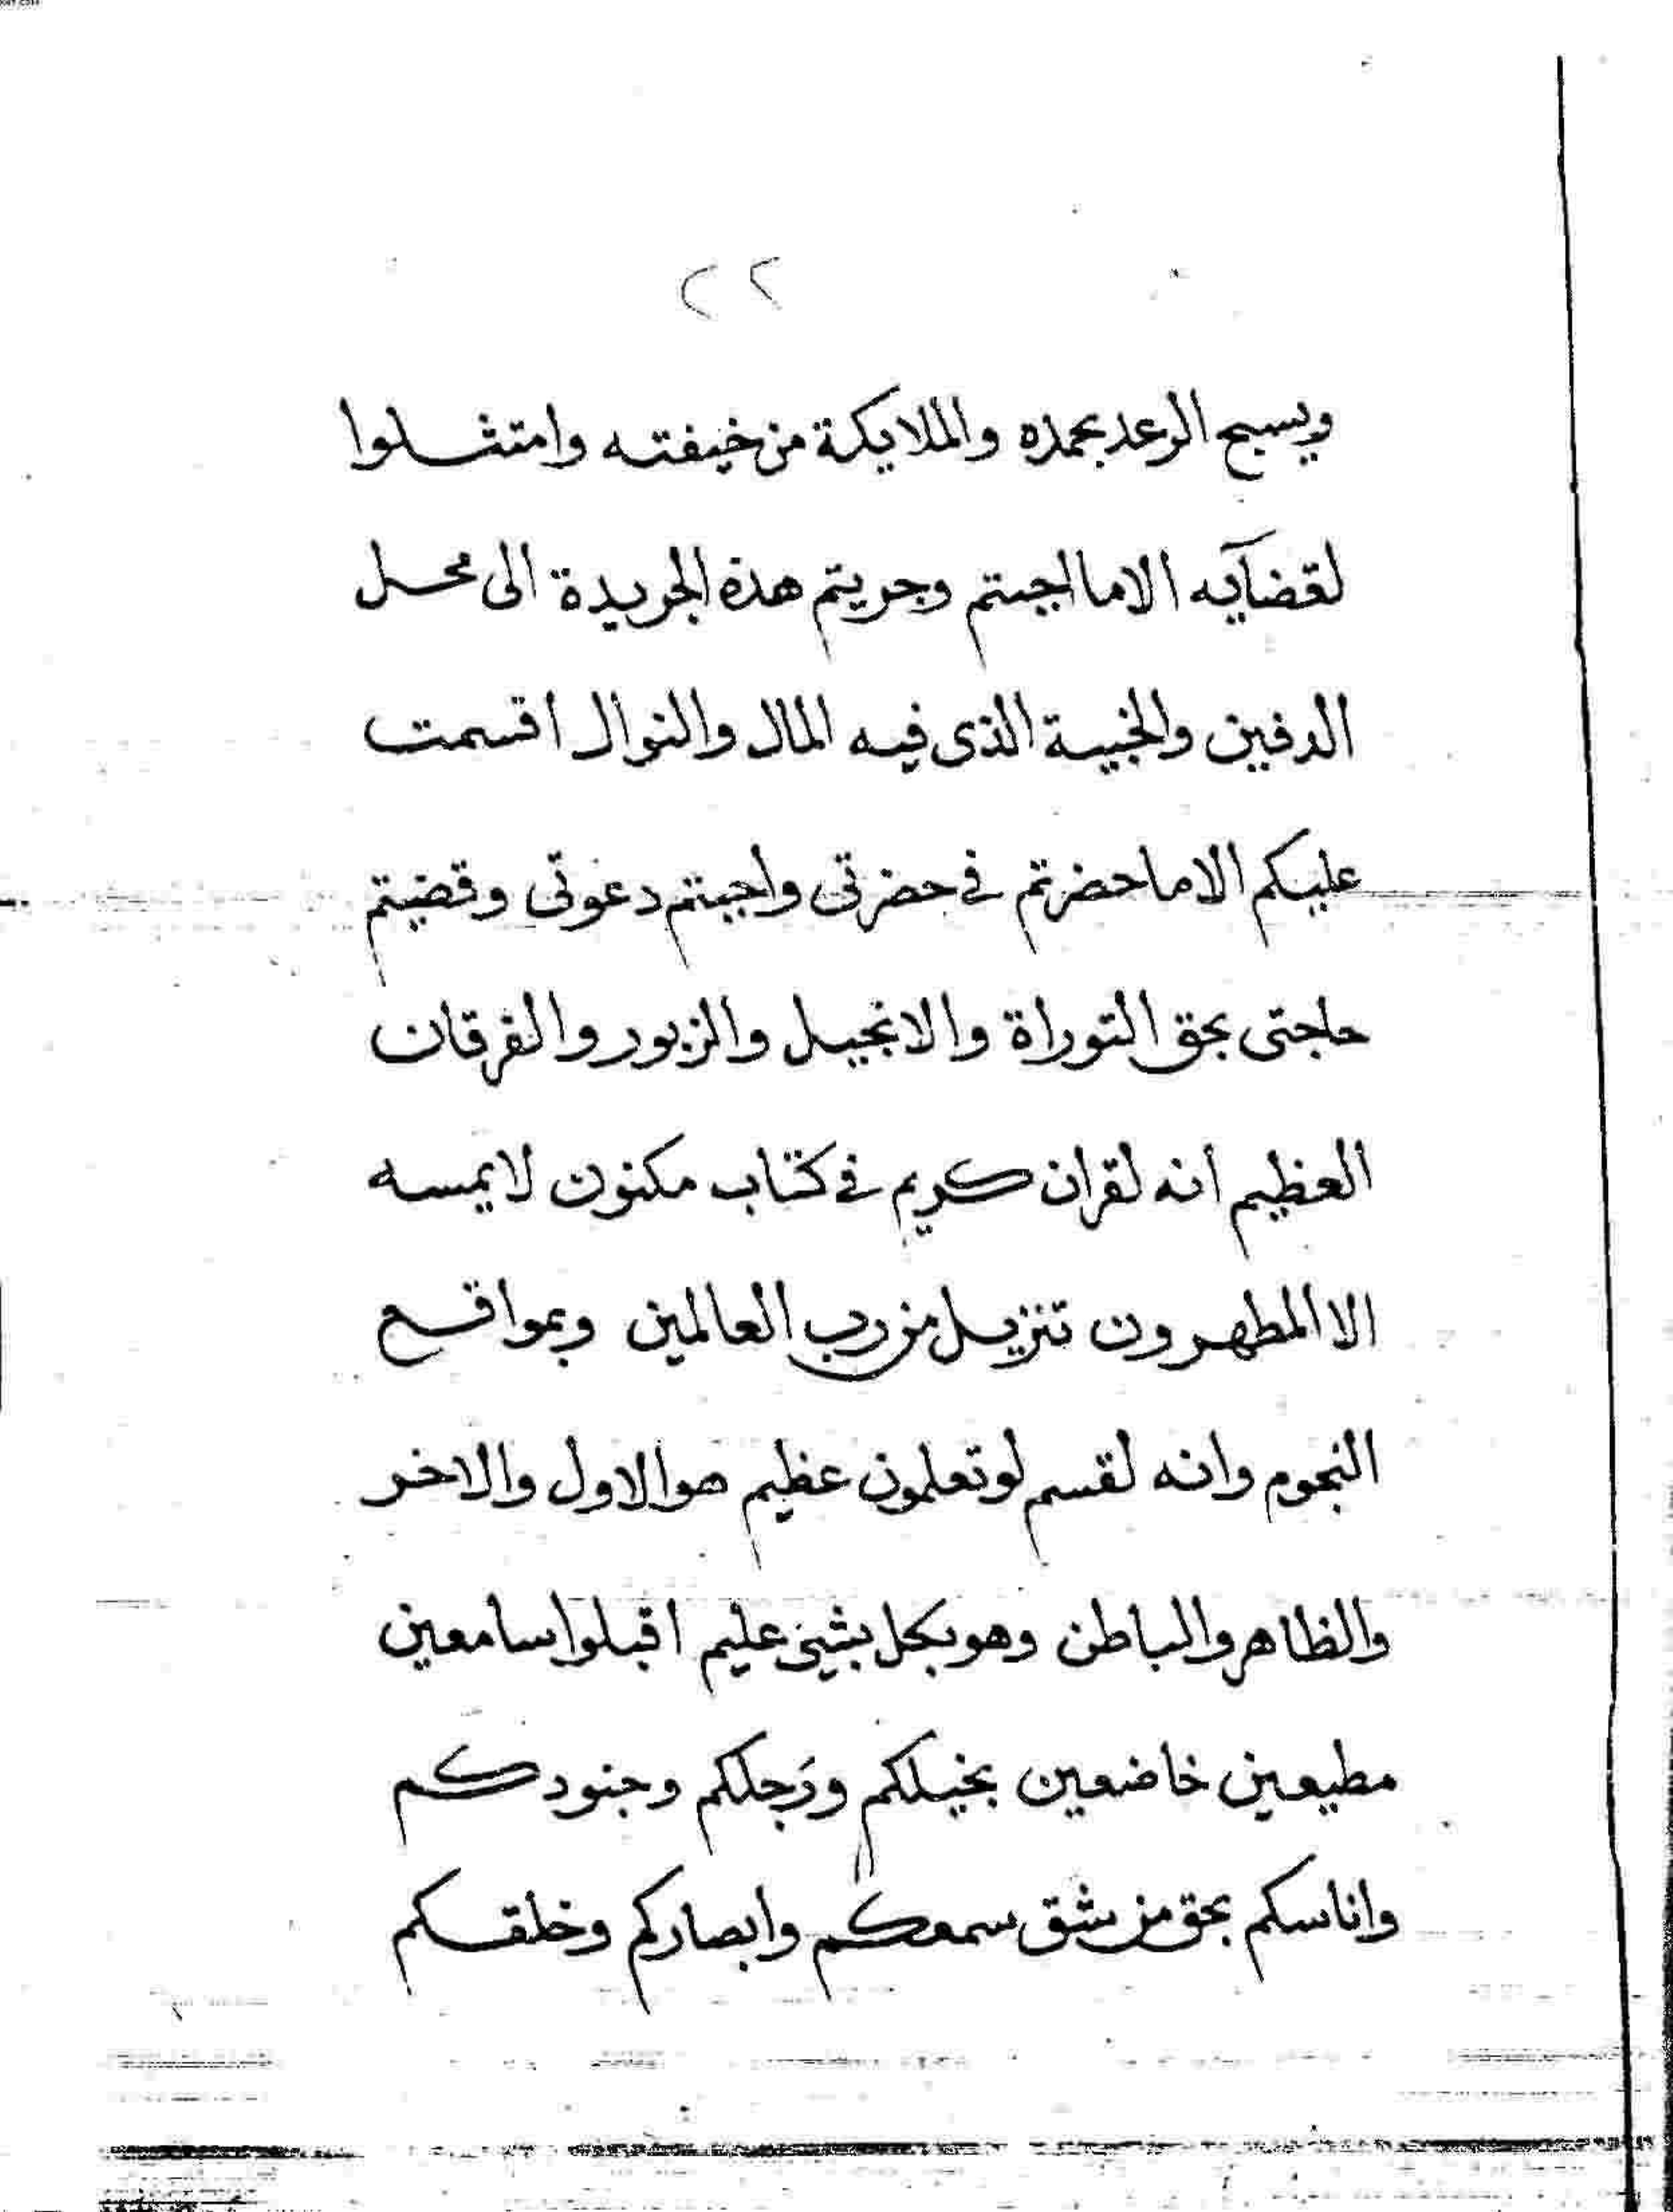 ٢٢
ويسبح الرعد بحمده والملايكة من خيفته وامتثلوا
لقضآيه الا ما اجبتم وجريتم هذه الجريدة الى محل
الدفين والخبية الذى فيه المال والنوال اقسمت
عليكم الا ما حضرتم فى حضرتى واجبتم دعوتى وقضيتم
حاجتى بحق التوراة والانجيل والزبور والفرقان
العظيم أنه لقران كريم فى كتاب مكنون لا يمسه
الا المطهرون تنزيل من رب العالمين وبمواقع
النجوم وانه لقسم لو تعلمون عظيم هو الاول والاخر
والظاهر والباطن وهو بكل شيئ عليم اقبلوا سامعين
مطيعين خاضعين بخيلكم ورَجلكم وجنودكم
واناسكم بحق من شق سمعكم وابصاركم وخلقكم